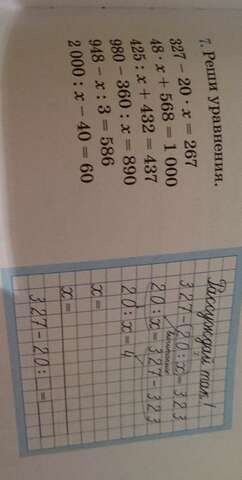 7. Реши уравнения.
327 − 20 · x = 267
48 · x + 568 = 1 000
425 : x + 432 = 437
980 − 360 : x = 890
948 − x : 3 = 586
2 000 : x − 40 = 60
Рассуждай так!
327 − 20 : x = 323
вычитаемое
20 : x = 327 − 323
20 : x = 4
x =
x =
327 − 20 : □ =